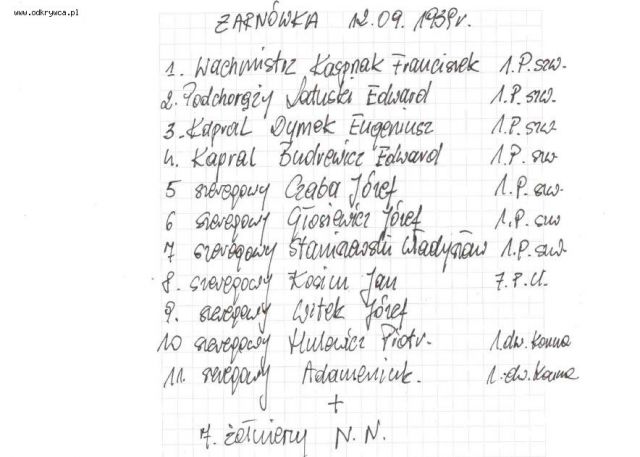 www.odkrywca.pl
ŻARNÓWKA 12.09.1939r.
1. Wachmistrz Kaspriak Franciszek 1.P.szw.
2. Podchorąży Satuski Edward 1.P. szw.
3. Kapral Dymek Eugeniusz 1.P. szw.
4. Kapral Budrewicz Edward 1.P. szw
5 szeregowy Czaba Józef 1.P. szw.
6 szeregowy Głosiewicz Józef 1.P. szw
7 szeregowy Staniszewski Władysław 1.P. szw.
8. szeregowy Kosim Jan 7.P.U.
9. szeregowy Witek Józef
10 szeregowy Hulewicz Piotr. 1.dw. Konna
11. szeregowy Adameniuk. 1.dw. Konna
+
7. żołnierzy N.N.